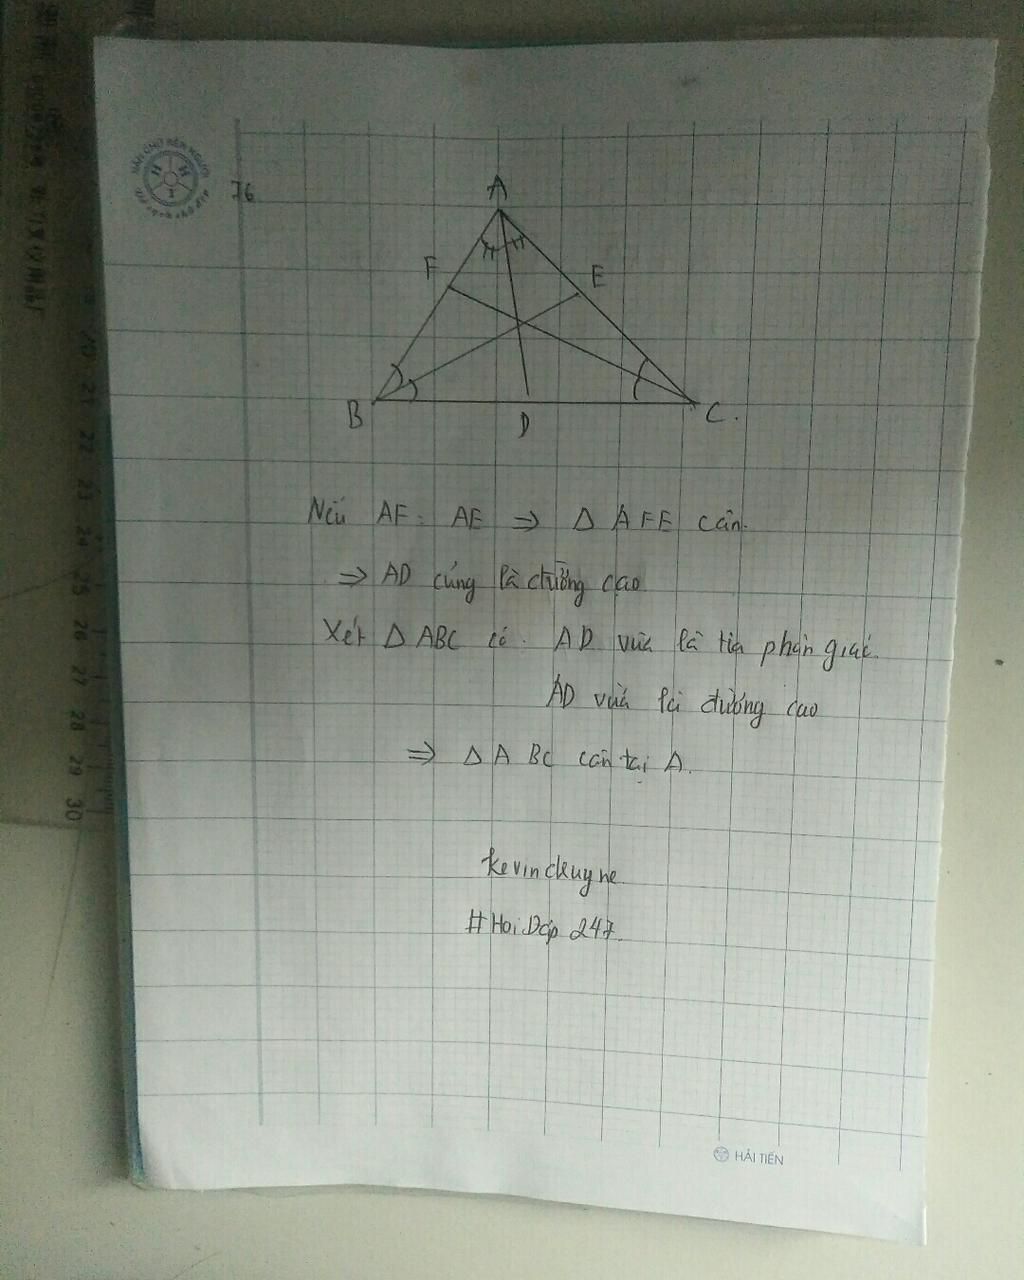 76
A
F
E
B
D
C.
Nếu AF = AE ⇒ Δ AFE cân.
⇒ AD cũng là đường cao
Xét Δ ABC có: AD vừa là tia phân giác.
AD vừa là đường cao
⇒ Δ ABC cân tại A.
kevinchuyne
#HoiDap 247.
HẢI TIẾN
20
21
22
23
24
25
26
27
28
29
30